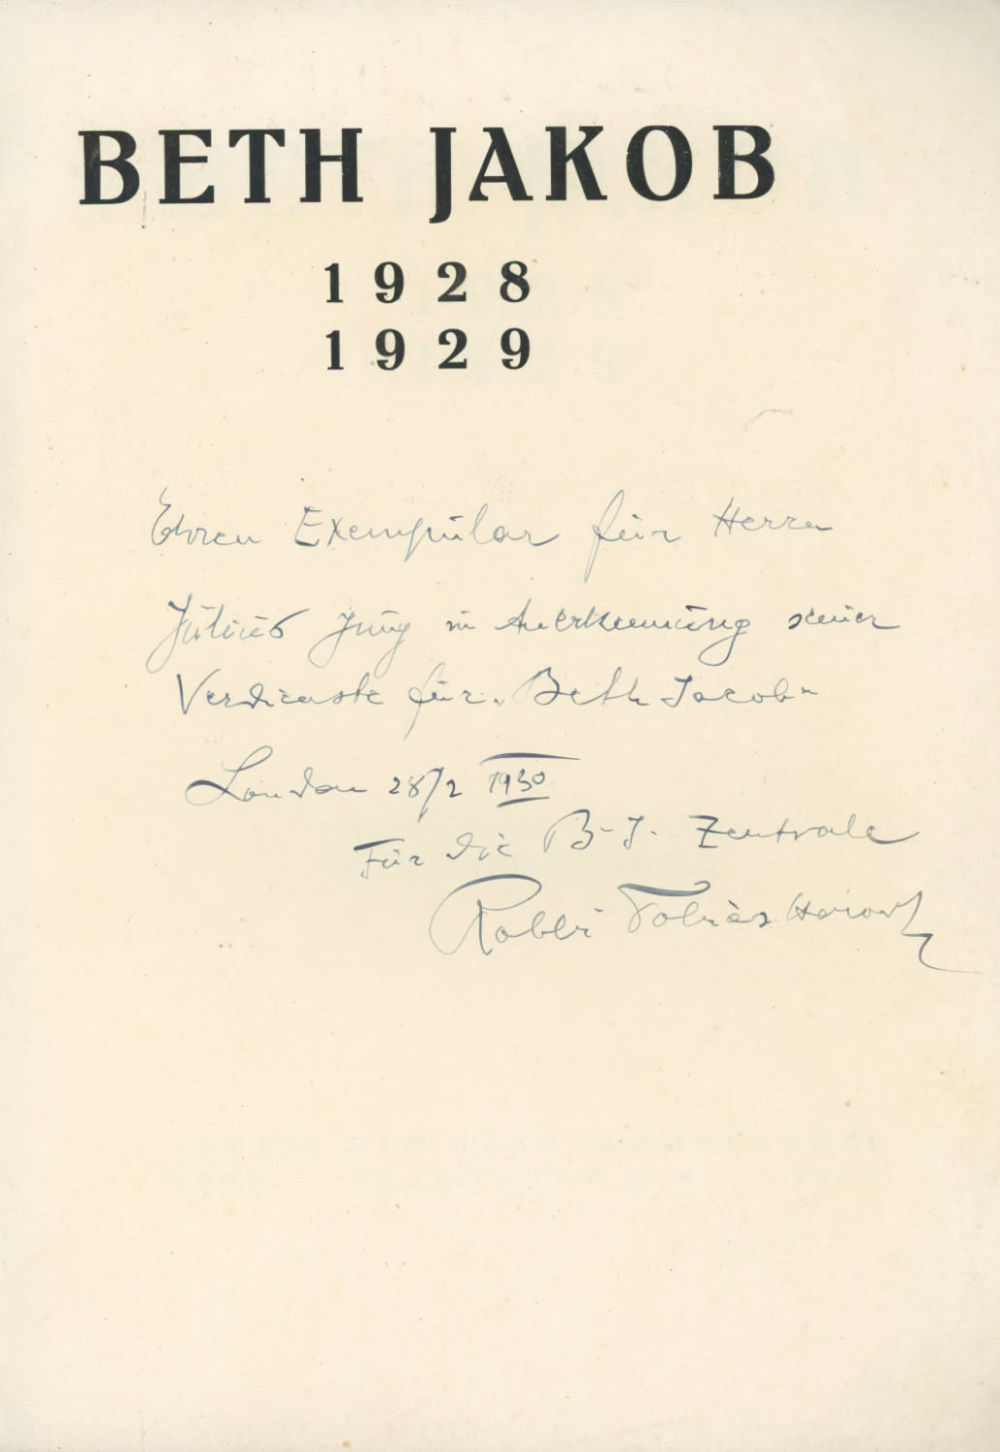 BETH JAKOB
1928
1929
Ehren Exemplar für Herrn
Julius Jung in Anerkennung seiner
Verdienste für Beth Jacob
London 28/2 1930
Für die B-J. Zentrale
Rabbi Tobias Horowitz